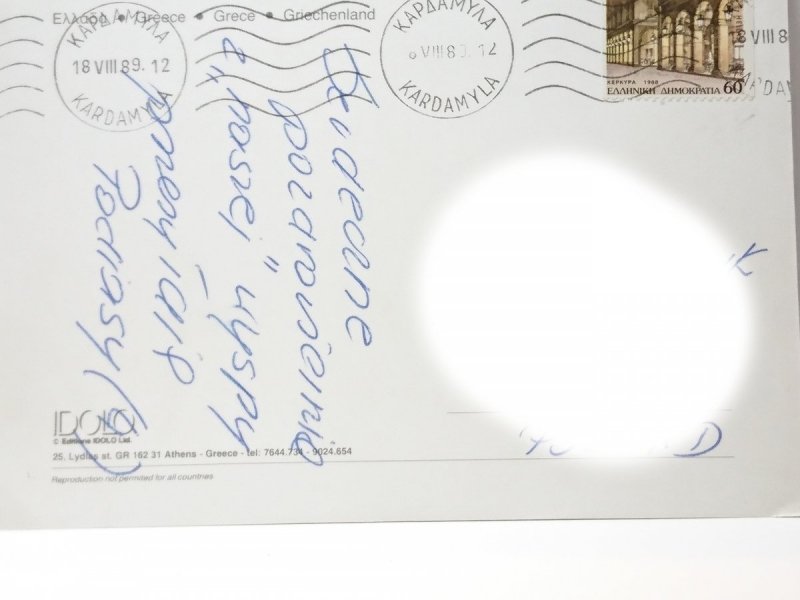 Ελλάδα • Greece • Grece • Griechenland
ΚΑΡΔΑΜΥΛΑ
18 VIII 89. 12
KARDAMYLA
ΚΑΡΔΑΜΥΛΑ
VIII 8 . 12
KARDAMYLA
VIII 8
ΚΕΡΚΥΡΑ 1988
ΕΛΛΗΝΙΚΗ ΔΗΜΟΚΡΑΤΙΑ 60
Serdeczne
pozdrowienia
z „naszej" wyspy
Podpisy
IDOLO
© Editions IDOLO Ltd.
25, Lydias st. GR 162 31 Athens - Greece - tel: 7644.734 - 9024.654
Reproduction not permited for all countries